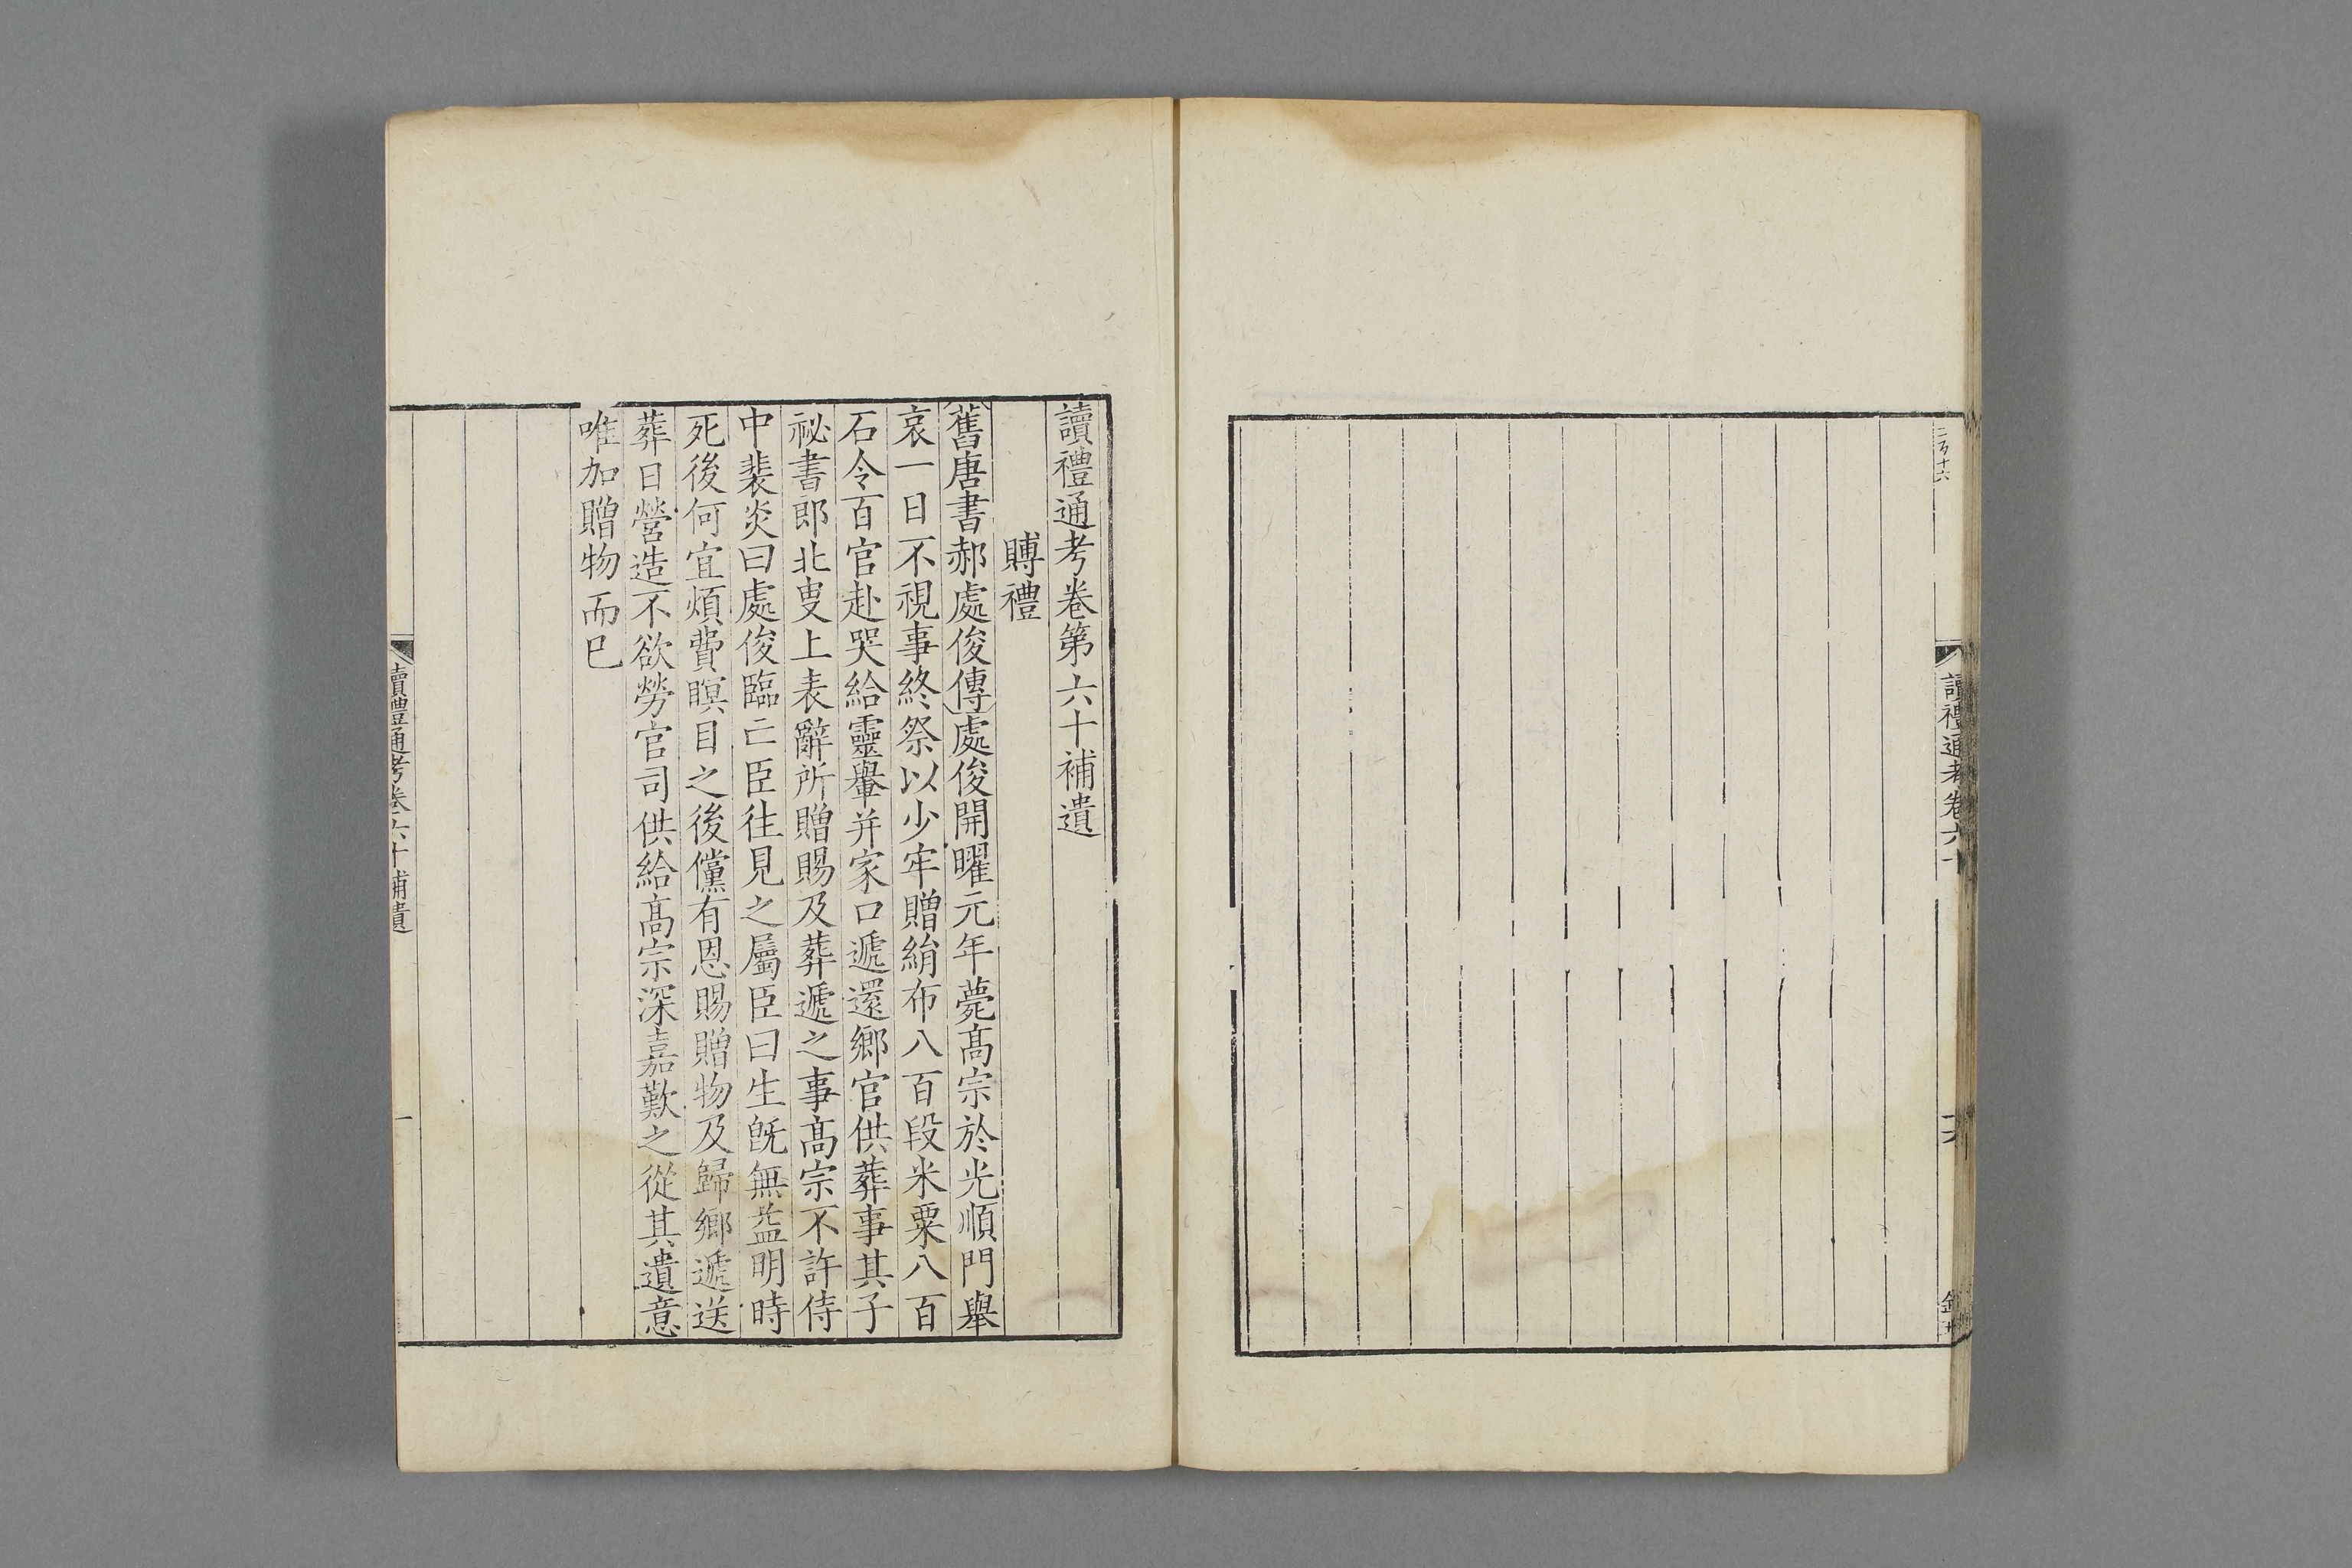 讀禮通考卷六十
讀禮通考卷第六十補遺
賻禮
舊唐書郝處俊傳處俊開曜元年薨高宗於光順門舉
哀一日不視事終祭以少牢贈絹布八百段米粟八百
石令百官赴哭給靈轝并家口遞還鄉官供葬事其子
祕書郎北叟上表辭所贈賜及葬遞之事高宗不許侍
中裴炎曰處俊臨亡臣往見之屬臣曰生旣無益明時
死後何宜煩費瞑目之後儻有恩賜贈物及歸鄉遞送
葬日營造不欲勞官司供給高宗深嘉歎之從其遺意
唯加贈物而已
讀禮通考卷六十補遺
一